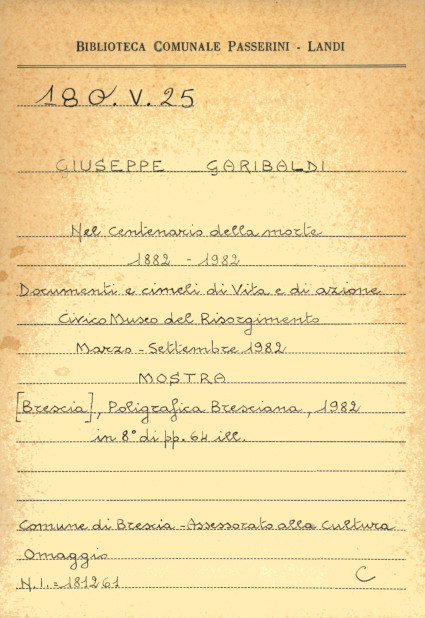 BIBLIOTECA COMUNALE PASSERINI - LANDI
180.V.25
GIUSEPPE GARIBALDI
Nel centenario della morte
1882 - 1982
Documenti e cimeli di Vita e di azione
Civico Museo del Risorgimento
Marzo - Settembre 1982
MOSTRA
[Brescia], Poligrafica Bresciana, 1982
in 8° di pp. 64 ill.
Comune di Brescia - Assessorato alla Cultura
Omaggio
N.I. = 181261
C